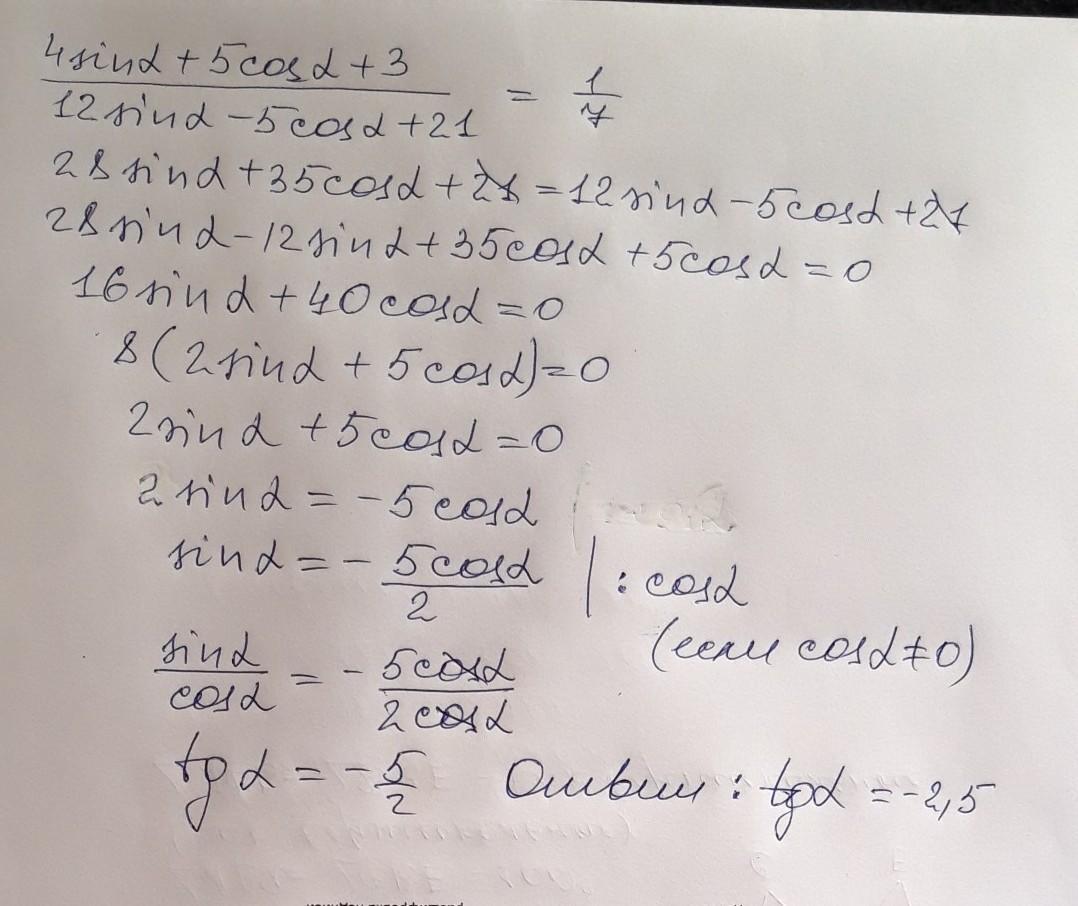 4sinα + 5cosα + 3
12sinα - 5cosα + 21
= 1/7
28sinα + 35cosα + 21 = 12sinα - 5cosα + 21
28sinα - 12sinα + 35cosα + 5cosα = 0
16sinα + 40cosα = 0
8(2sinα + 5cosα) = 0
2sinα + 5cosα = 0
2sinα = -5cosα
sinα = - 5cosα/2 | : cosα
(если cosα ≠ 0)
sinα/cosα = - 5cosα/2cosα
tgα = - 5/2 Ответ : tgα = -2,5